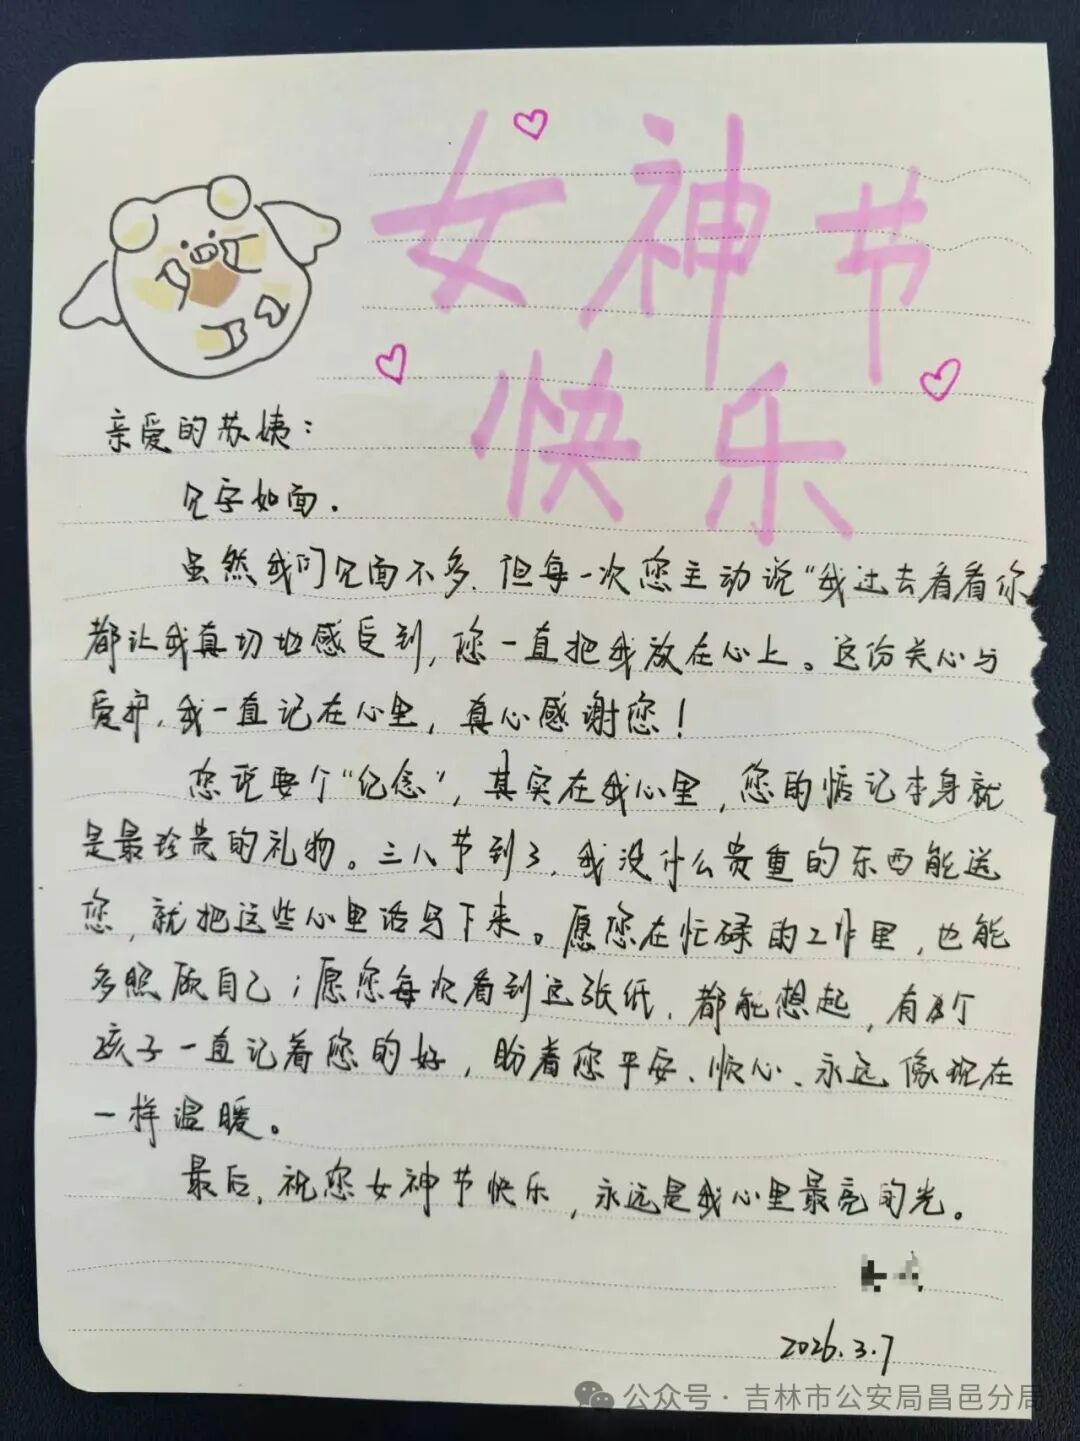 女神节
快乐
亲爱的苏姨：
见字如面.
虽然我们见面不多.但每一次您主动说“我过去看看你
都让我真切地感受到,您一直把我放在心上。这份关心与
爱护,我一直记在心里,真心感谢您！
您说要个“纪念”,其实在我心里,您的惦记本身就
是最珍贵的礼物。三八节到了,我没什么贵重的东西能送
您,就把这些心里话写下来。愿您在忙碌的工作里,也能
多照顾自己；愿您每次看到这张纸,都能想起,有个
孩子一直记着您的好,盼着您平安、顺心、永远像现在
一样温暖。
最后,祝您女神节快乐,永远是我心里最亮的光。
2026.3.7
公众号·吉林市公安局昌邑分局